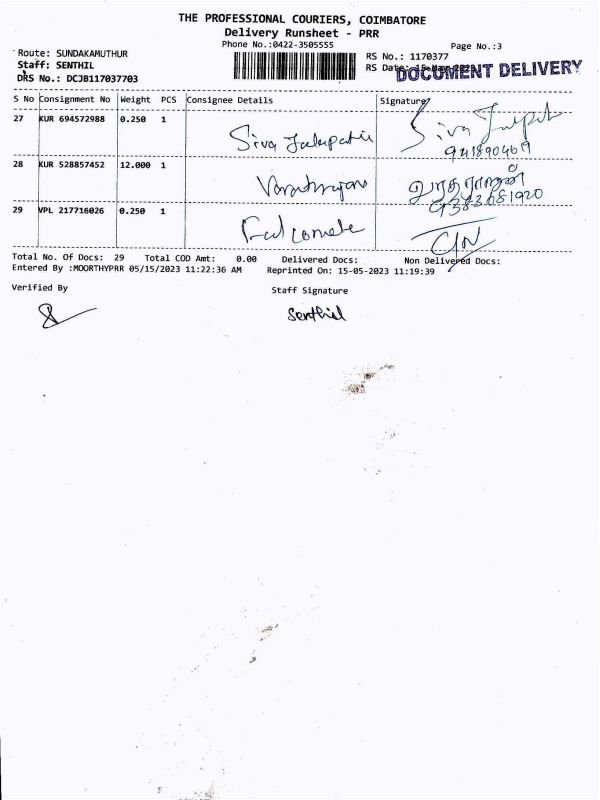 THE PROFESSIONAL COURIERS, COIMBATORE
Delivery Runsheet - PRR
Phone No.:0422-3505555
Page No.:3
Route: SUNDAKAMUTHUR
RS No.: 1170377
Staff: SENTHIL
RS Date: 15-May-2023
DOCUMENT DELIVERY
DRS No.: DCJB117037703
S No Consignment No Weight PCS Consignee Details Signature
27 KUR 694572988 0.250 1
Siva
Siva
28 KUR 528857452 12.000 1
வரதராஜன்
29 VPL 217716026 0.250 1
Total No. Of Docs: 29 Total COD Amt: 0.00 Delivered Docs: Non Delivered Docs:
Entered By :MOORTHYPRR 05/15/2023 11:22:36 AM Reprinted On: 15-05-2023 11:19:39
Verified By Staff Signature
Senthil